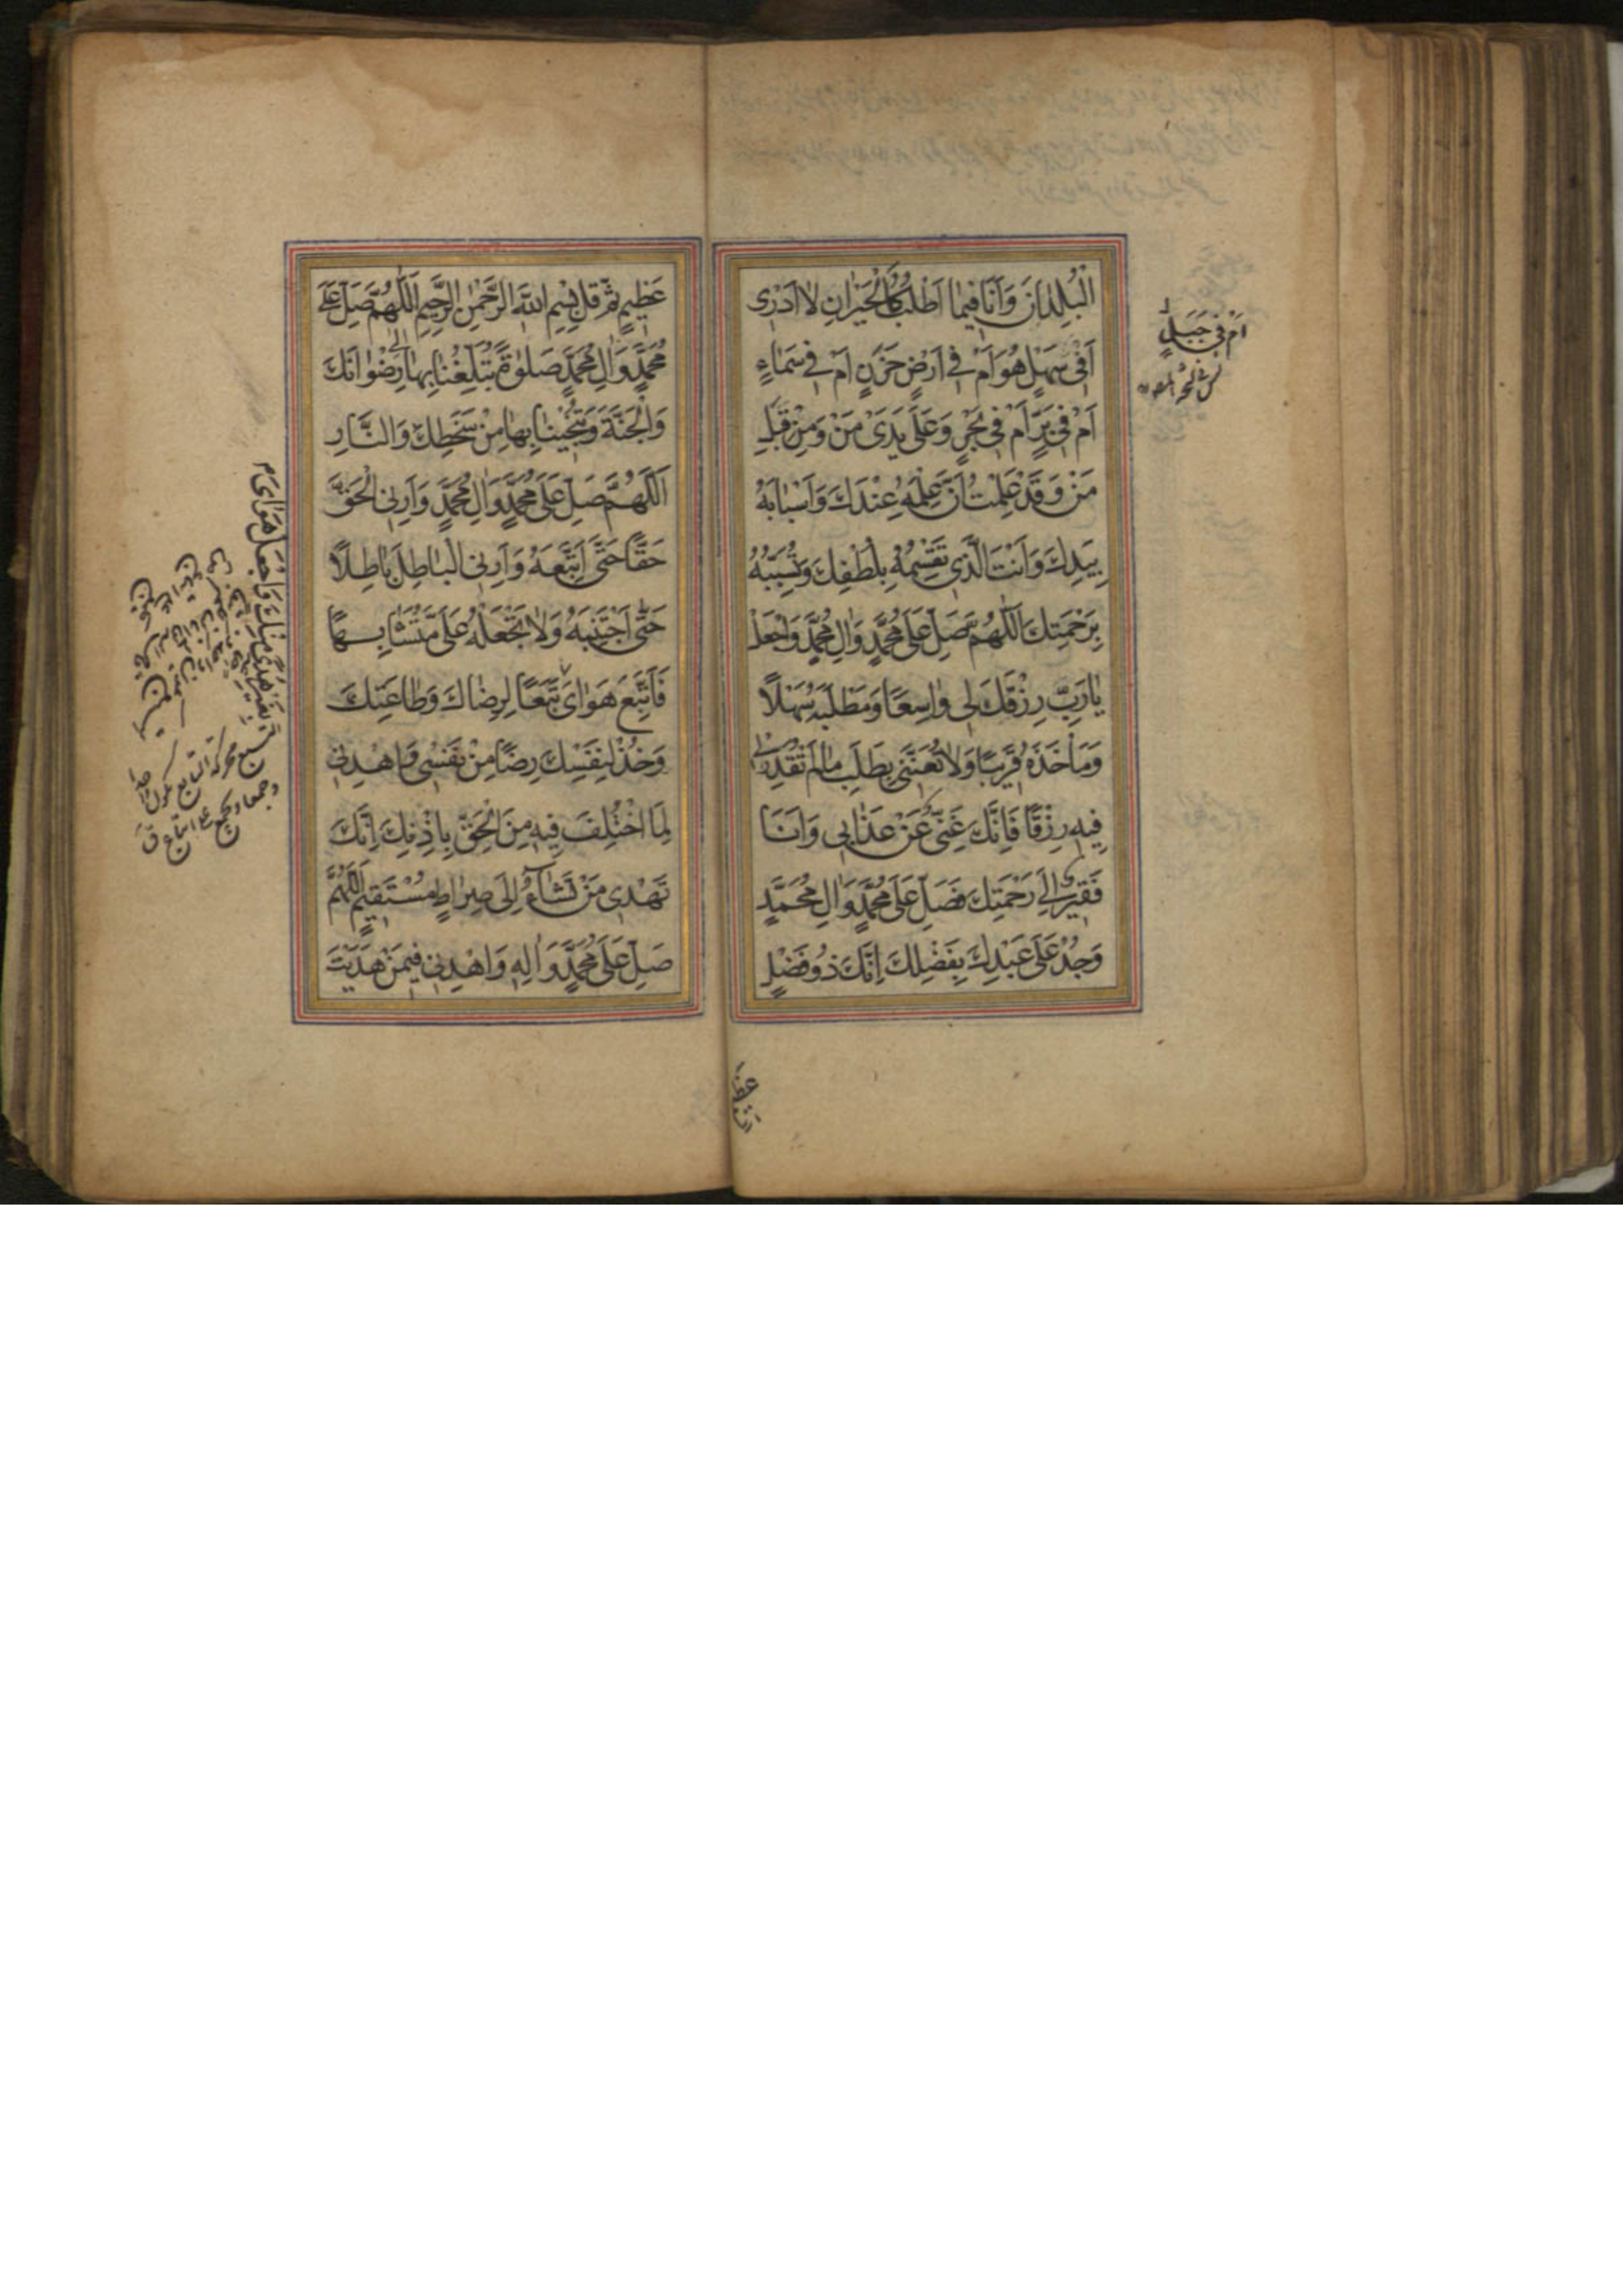 الْبُلْدَانَ وَاَنَا فيمٰا اَطْلُبُ كَالْحَيْرٰانِ لاٰ اَدْرى
اَفى سَهْلٍ هُوَ اَمْ فى اَرْضٍ حَزَنٍ اَمْ فى سَمٰاءٍ
اَمْ فى بَرٍّ اَمْ فى بَحْرٍ وَعَلٰى يَدَىْ مَنْ وَمِنْ قِبَلِ
مَنْ وَقَدْ عَلِمْتُ اَنَّ عِلْمَهُ عِنْدَكَ وَاَسْبٰابَهُ
بِيَدِكَ وَاَنْتَ الَّذى تَقْسِمُهُ بِلُطْفِكَ وَتُسَبِّبُهُ
بِرَحْمَتِكَ اَللّٰهُمَّ صَلِّ عَلٰى مُحَمَّدٍ وَاٰلِ مُحَمَّدٍ وَاجْعَلْ
يٰا رَبِّ رِزْقَكَ لى وٰاسِعًا وَمَطْلَبَهُ سَهْلًا
وَمَأْخَذَهُ قَريبًا وَلاٰ تُعَنِّنى بِطَلَبِ مٰا لَمْ تُقَدِّرْ لى
فيهِ رِزْقًا فَاِنَّكَ غَنِىٌّ عَنْ عَذٰابى وَاَنَا
فَقيرٌ اِلٰى رَحْمَتِكَ فَصَلِّ عَلٰى مُحَمَّدٍ وَاٰلِ مُحَمَّدٍ
وَجُدْ عَلٰى عَبْدِكَ بِفَضْلِكَ اِنَّكَ ذُو فَضْلٍ
اَمْ فى جَبَلٍ
عَظيمٍ ثُمَّ قُلْ بِسْمِ اللّٰهِ الرَّحْمٰنِ الرَّحيمِ اَللّٰهُمَّ صَلِّ عَلٰى
مُحَمَّدٍ وَاٰلِ مُحَمَّدٍ صَلٰوةً تُبَلِّغُنٰا بِهٰا اِلٰى رِضْوٰانِكَ
وَالْجَنَّةَ وَتُنَجّينٰا بِهٰا مِنْ سَخَطِكَ وَالنّٰارِ
اَللّٰهُمَّ صَلِّ عَلٰى مُحَمَّدٍ وَاٰلِ مُحَمَّدٍ وَاَرِنِى الْحَقَّ
حَقًّا حَتّٰى اَتَّبِعَهُ وَاَرِنِى الْبٰاطِلَ بٰاطِلًا
حَتّٰى اَجْتَنِبَهُ وَلاٰ تَجْعَلْهُ عَلَىَّ مُتَشٰابِهًا
فَاَتَّبِعَ هَوٰاىَ تَبَعًا لِرِضٰاكَ وَطٰاعَتِكَ
وَخُذْ لِنَفْسِكَ رِضًا مِنْ نَفْسى وَاهْدِنى
لِمَا اخْتُلِفَ فيهِ مِنَ الْحَقِّ بِاِذْنِكَ اِنَّكَ
تَهْدى مَنْ تَشٰآءُ اِلٰى صِرٰاطٍ مُسْتَقيمٍ اَللّٰهُمَّ
صَلِّ عَلٰى مُحَمَّدٍ وَاٰلِهِ وَاهْدِنى فيمَنْ هَدَيْتَ
بِغَيْرِ هُدًى مِنْكَ وَاجْعَلْ هَوٰاىَ